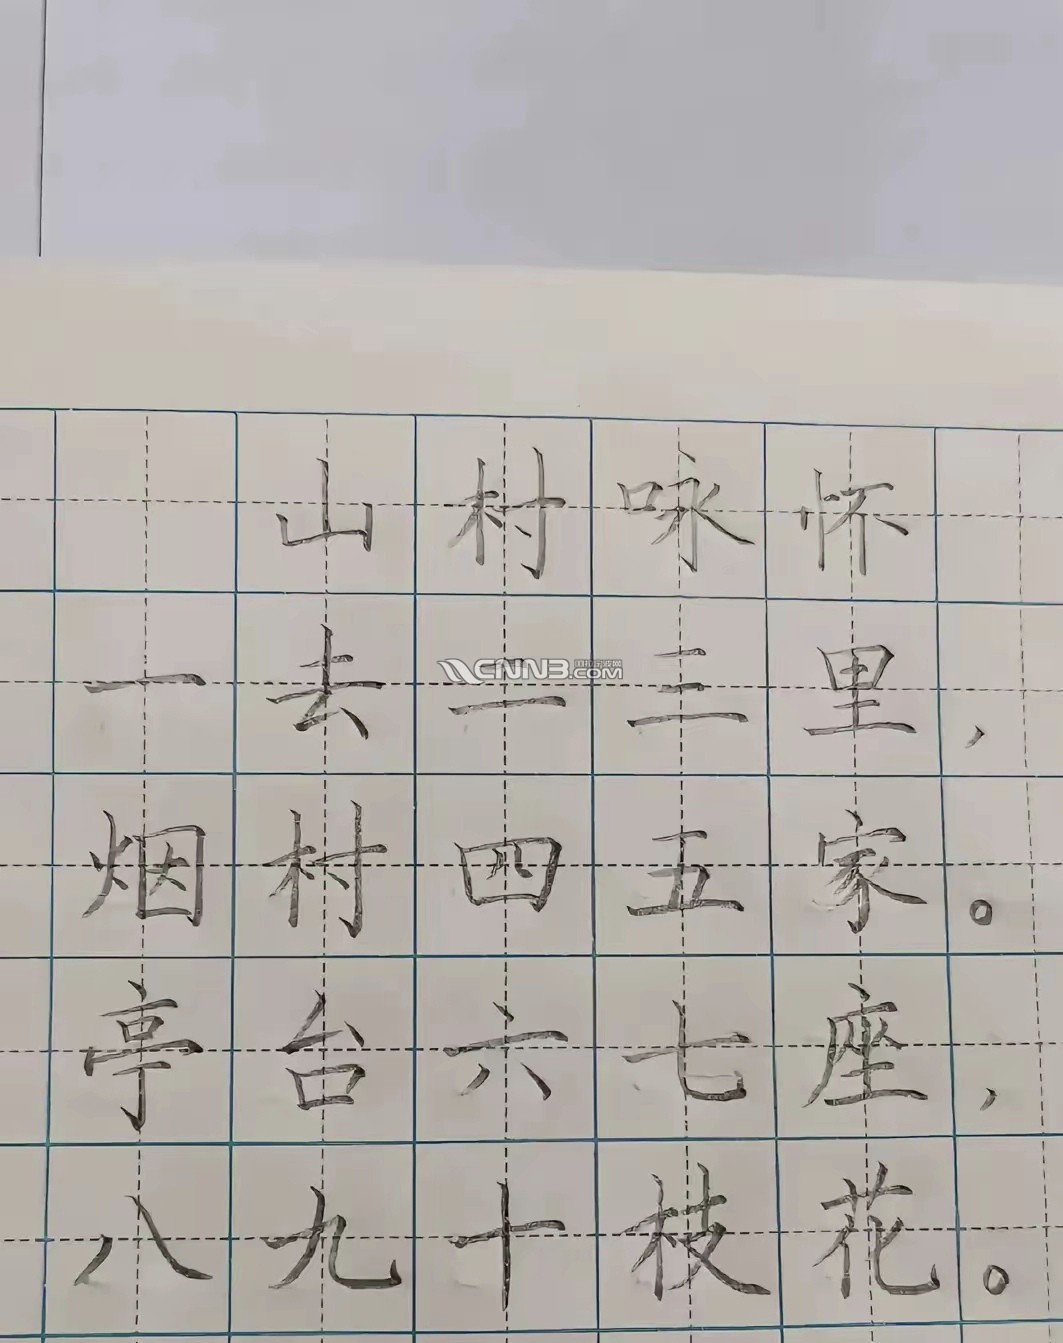 山村咏怀
一去二三里，
烟村四五家。
亭台六七座，
八九十枝花。
CNNB.COM